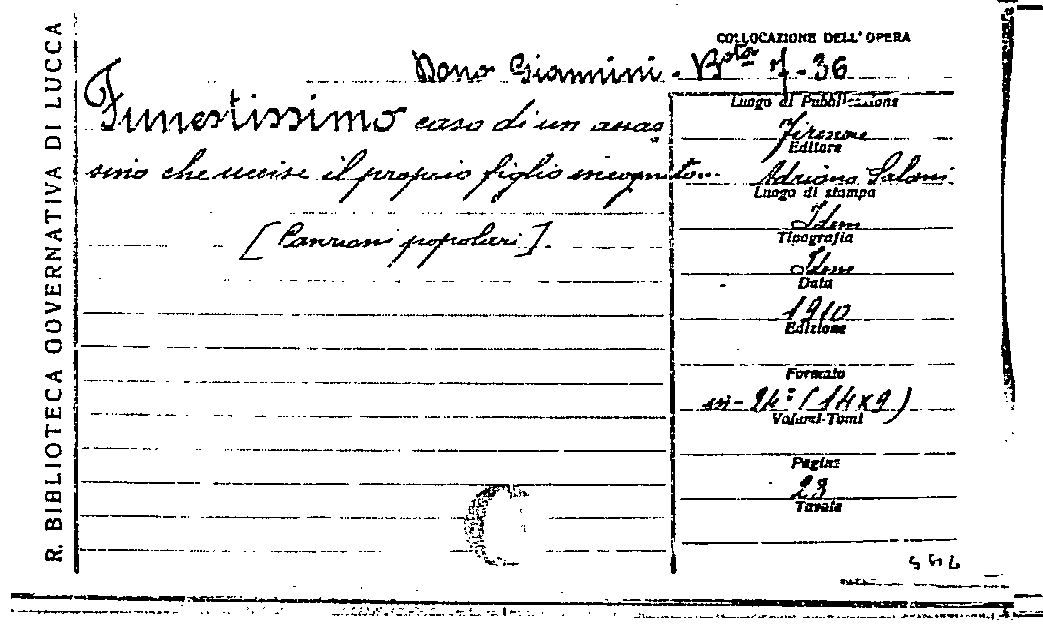 R. BIBLIOTECA GOVERNATIVA DI LUCCA
COLLOCAZIONE DELL'OPERA
Dono Giannini - Bta 7 - 36
Funestissimo caso di un assas
sino che uccise il proprio figlio incognito...
[Canzoni popolari].
Luogo di Pubblicazione
Firenze
Editore
Adriano Salani
Luogo di stampa
Idem
Tipografia
Idem
Data
1910
Edizione
Formato
in-24° (14x9)
Volumi-Tomi
Pagine
23
Tavole